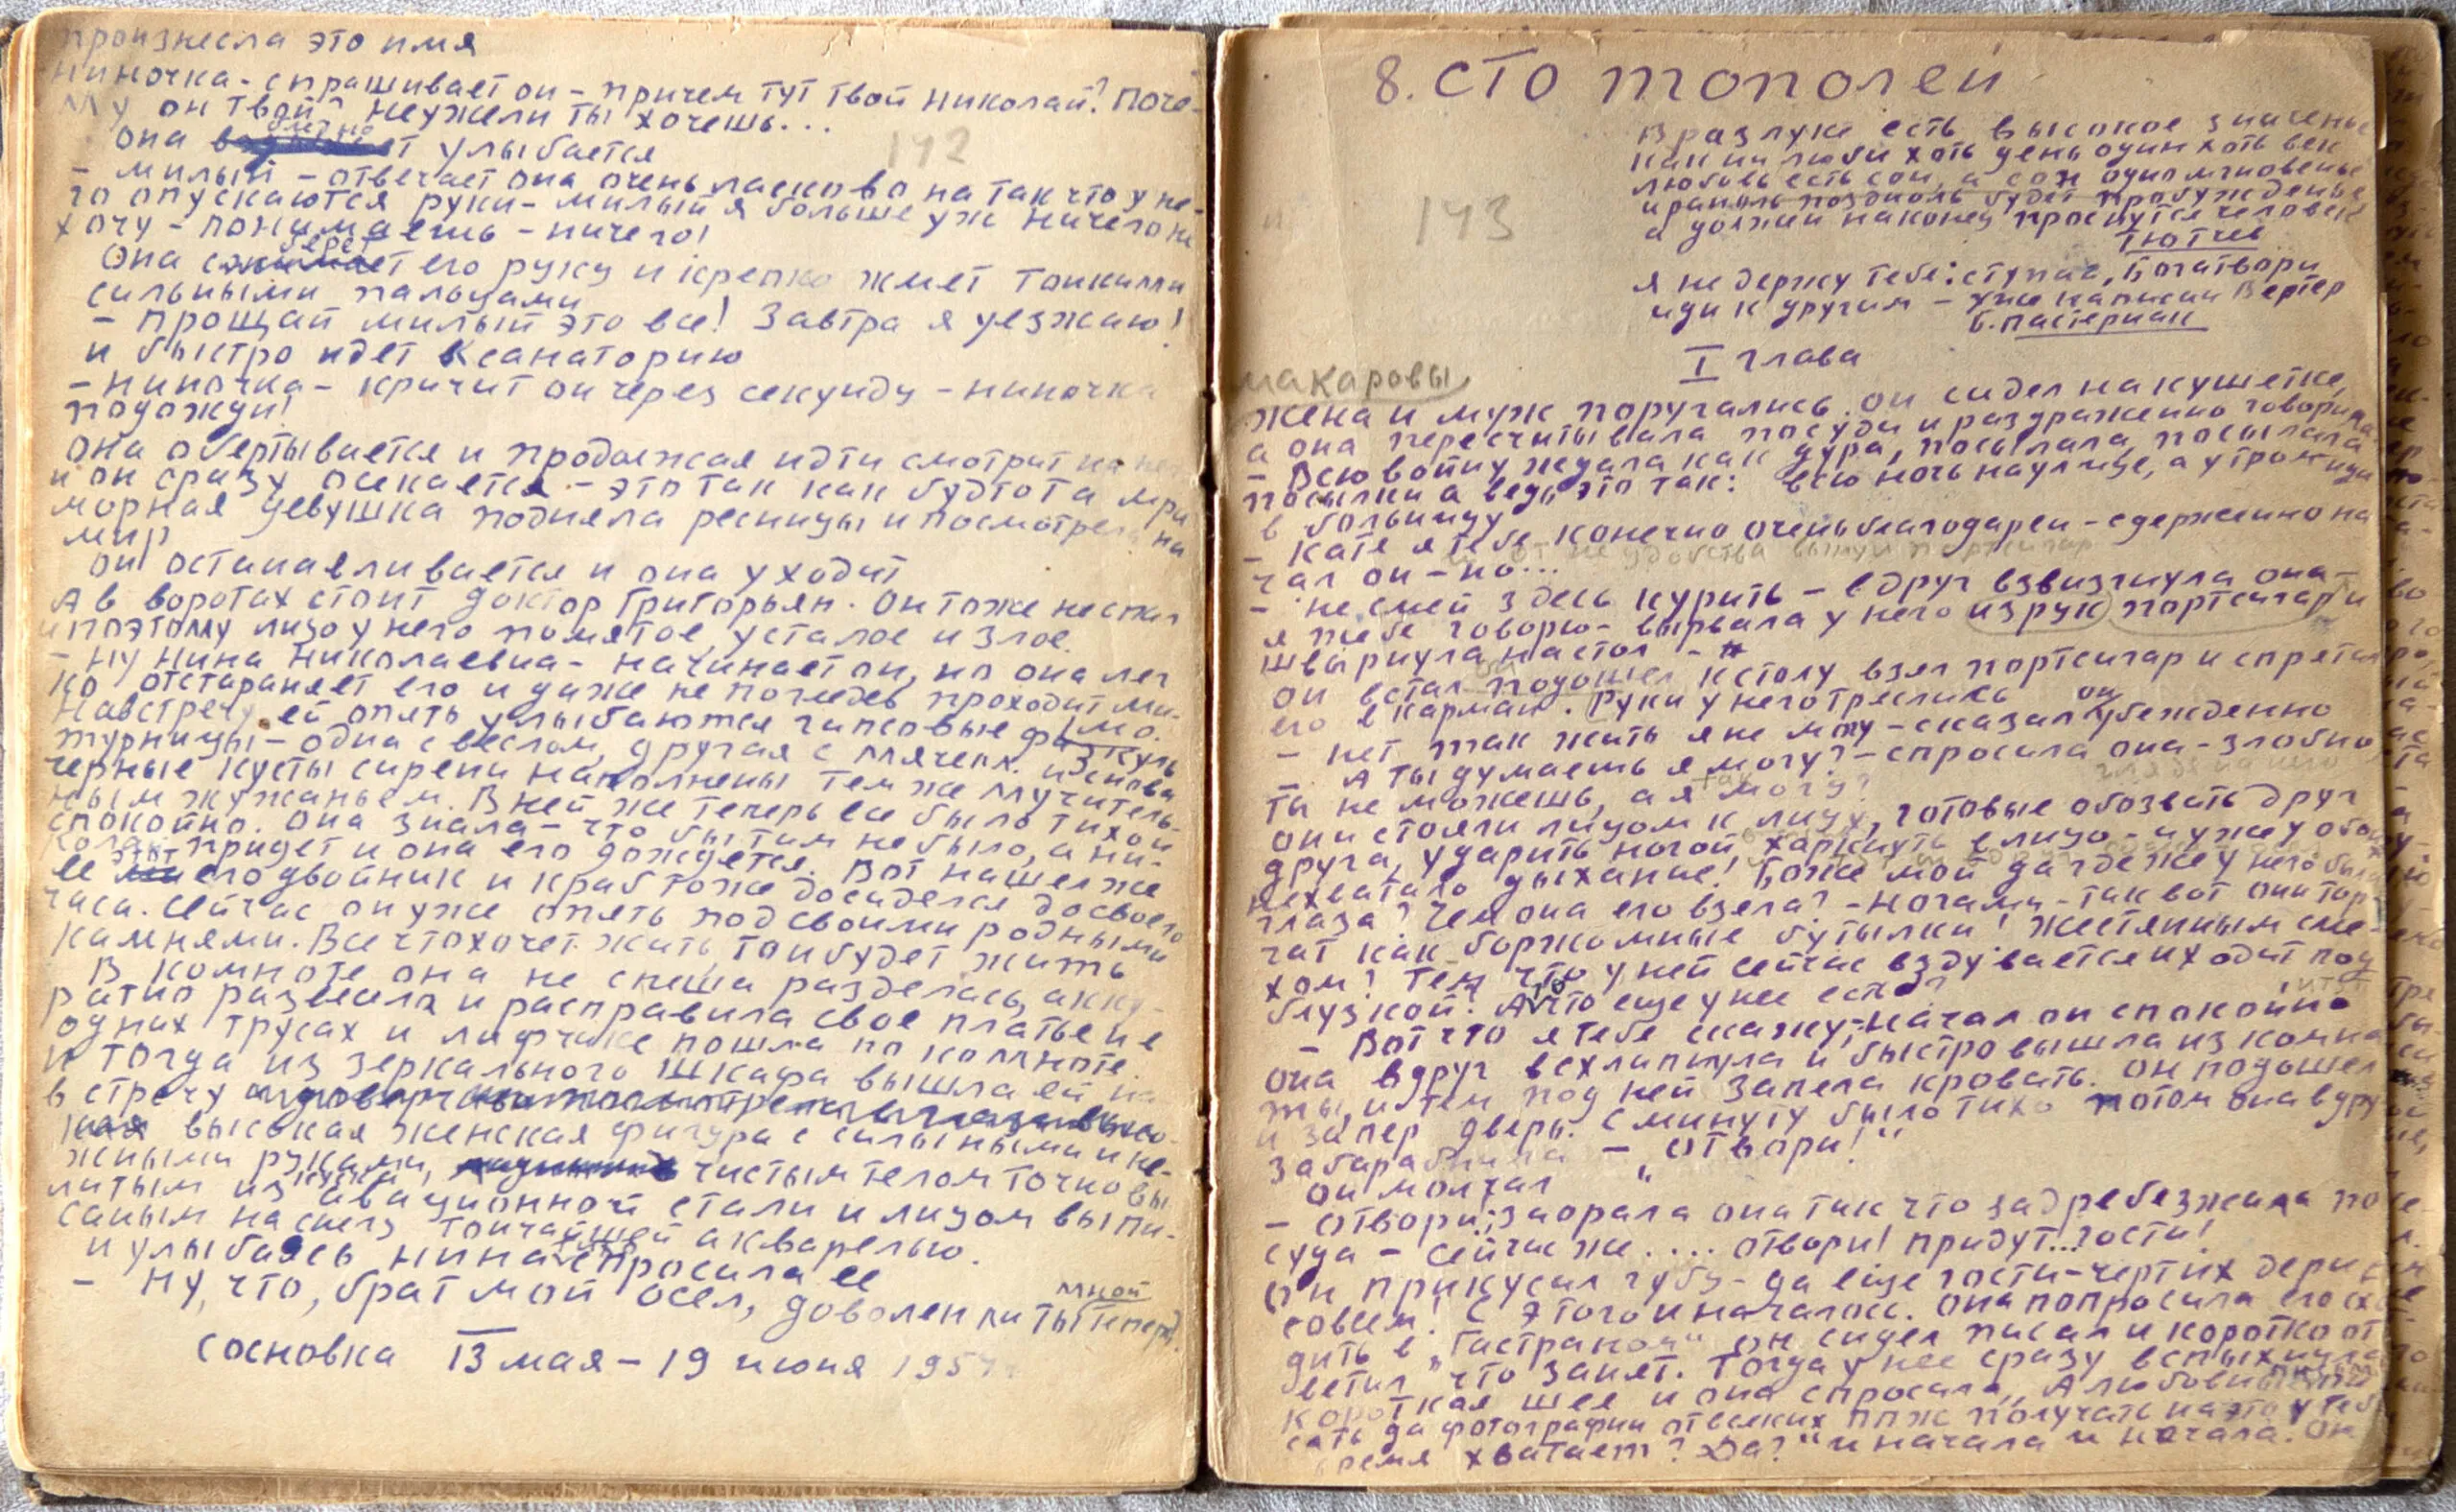 произнесла это имя
ниночка - спрашивает он - причем тут твой николай? Поче-
му он твой? неужели ты хочешь...
142
она улыбается
- милый - отвечает она очень ласково на так что у не-
го опускаются руки - милый я больше уж ничего не
хочу - понимаешь - ничего!
берет
Она его руку и крепко жмет тонкими
сильными пальцами
- прощай милый это все! Завтра я уезжаю!
и быстро идет к санаторию
- ниночка - кричит он через секунду - ниночка
подожди!
она обертывается и продолжая идти смотрит на
и он сразу осекается - это так как будто та мра
морная девушка подняла ресницы и посмотрела на
мир
он останавливается и она уходит
А в воротах стоит доктор Григорьян. Он тоже не спал
и поэтому лицо у него помятое, усталое и злое.
- ну нина николаевна - начинает он, но она лег
ко отстараняет его и даже не поглядев проходит ми-
мо.
Навстречу ей опять улыбаются гипсовые физкуль
турницы - одна с веслом, другая с мячем. и снова
черные кусты сирени наполнены тем же мучитель-
ным жужжаньем. В ней же теперь все было тихо и
спокойно. Она знала - что бы там не было, а ни-
колай придет и она его дождется. Вот нашел же
ее этот его двойник и краб тоже досиделся до своего
часа. Сейчас он уже опять под своими родными
камнями. Все что хочет жить, то и будет жить
В комнате она не спеша разделась, акку-
ратно развесила и расправила свое платье и в
одних трусах и лифчике пошла по комнате.
и тогда из зеркального шкафа вышла ей на
встречу
высокая женская фигура с сильными и не-
жными руками, чистым телом точно вы
литым из авационной стали и лицом выпи-
саным на снегу тончайшей акварелью.
и улыбаясь нина спросила ее
- ну, что, брат мой осел, доволен ли ты мной теперь?
сосновка 13 мая - 19 июня 195
8. сто тополей
В разлуке есть высокое значенье
как ни люби хоть день один хоть век
любовь есть сон, а сон одно мгновенье
и рано ль поздноль будет пробужденье
а должен наконец проснутся человек
Тютчев
143
я не держу тебе: ступай, благатвори
иди к другим - уже написан Вертер
Б. пастернак
I глава
макаровы
жена и муж поругались. он сидел на кушетке,
а она пересчитывала посуду и раздраженно говорила
- Всю войну ждала как дура, посылала, посылала
посылки а ведь это так: всю ночь на улице, а утром иди
в больницу
- Катя я тебе конечно очень благодарен - сдержанно на
чал он - но...
- не смей здесь курить - вдруг взвизгнула она -
я тебе говорю - вырвала у него из рук портсигар и
швырнула на стол -
он встал подошел к столу взял портсигар и спрятал
его в карман. Руки у него тряслись
- нет так жить я не могу - сказал он убежденно
- А ты думаешь я могу? - спросила она - злобно
глядя на него
ты не можешь, а я так могу?
они стояли лицом к лицу, готовые обозвать друг
друга, ударить ногой харкнуть в лицо - и уже у обо
нехватало дыхание! Боже мой да где же у него были
глаза? Чем она его взела? - ногами - так вот они тор-
чат как боржомные бутылки! жестянным сме-
хом? Тем что у ней сейчас вздувается и ходит под
блузкой? А что еще у нее есть?
- Вот что я тебе скажу, - начал он спокойно
она вдруг всхлипнула и быстро вышла из комна
ты, и тем под ней запела кровать. Он подошел
и запер дверь. С минуту было тихо потом она вдру
забарабанила - „отвори!“
он молчал
- отвори, заорала она так что задребезжала по
суда - сейчас же.... отвори! придут... гости!
Он прикусил губу - да еще гости - черт их дери
совсем! С этого и началось. Она попросила его схо
дить в „Гастраном“ он сидел писал и коротко от
ветил что занят. Тогда у нее сразу вспыхнула
короткая шея и она спросила „А любовные пи
сать да фотографии от всяких ппж получать на это у теб
время хватает? Да?“ и начала и начала. Он